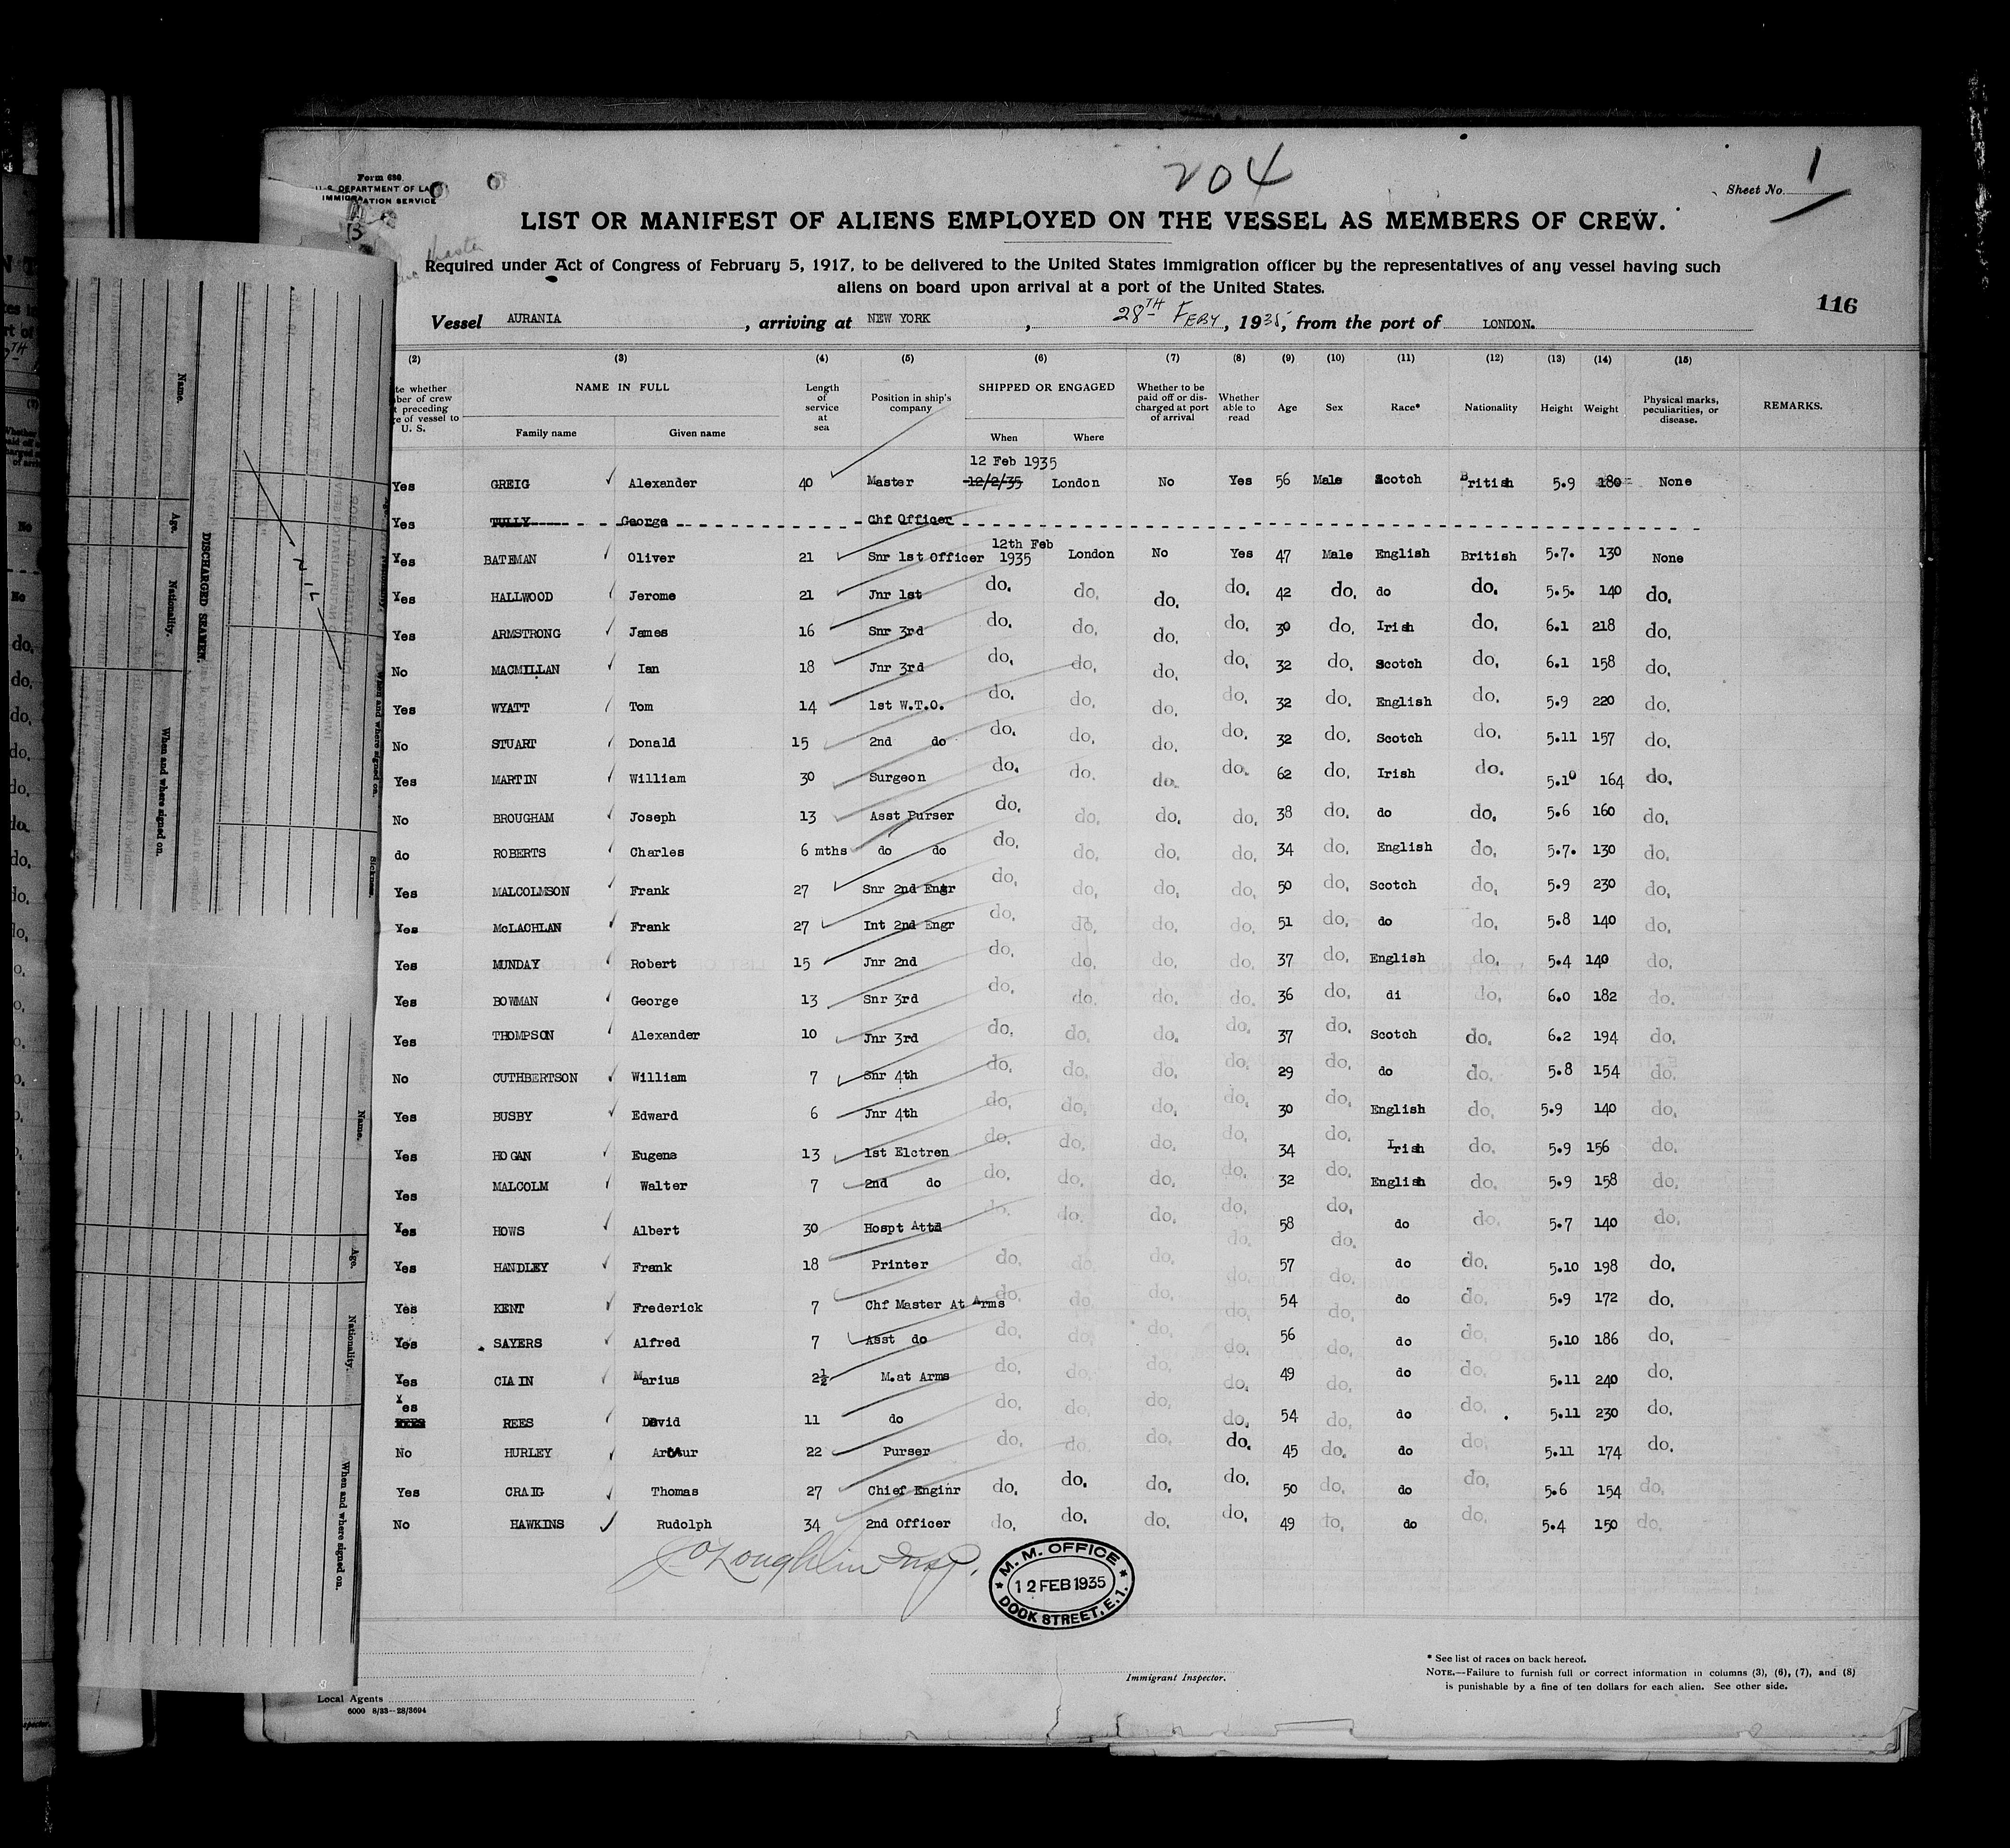 204
Form 689
U.S. DEPARTMENT OF LA
IMMIGRATION SERVICE
Sheet No. 1
LIST OR MANIFEST OF ALIENS EMPLOYED ON THE VESSEL AS MEMBERS OF CREW.
Required under Act of Congress of February 5, 1917, to be delivered to the United States immigration officer by the representatives of any vessel having such
aliens on board upon arrival at a port of the United States.
116
Vessel AURANIA, arriving at NEW YORK, 28TH FEBY, 1935, from the port of LONDON.
(2) (3) (4) (5) (6) (7) (8) (9) (10) (11) (12) (13) (14) (15)
te whether
ber of crew
t preceding
ge of vessel to
U. S.
NAME IN FULL
Family name Given name
Length of service at sea
Position in ship's company
SHIPPED OR ENGAGED
When Where
Whether to be paid off or discharged at port of arrival
Whether able to read
Age Sex Race* Nationality Height Weight
Physical marks, peculiarities, or disease.
REMARKS.
12 Feb 1935
Yes GREIG Alexander 40 Master 12/2/35 London No Yes 56 Male Scotch British 5.9 180 None
Yes TULLY George Chf Officer
Yes BATEMAN Oliver 21 Snr 1st Officer 12th Feb 1935 London No Yes 47 Male English British 5.7. 130 None
Yes HALLWOOD Jerome 21 Jnr 1st do. do. do. do. 42 do. do do. 5.5. 140 do.
Yes ARMSTRONG James 16 Snr 3rd do. do. do. do. 30 do. Irish do. 6.1 218 do.
No MACMILLAN Ian 18 Jnr 3rd do. do. do. do. 32 do. Scotch do. 6.1 158 do.
Yes WYATT Tom 14 1st W.T.O. do. do. do. do. 32 do. English do. 5.9 220 do.
No STUART Donald 15 2nd do do. do. do. do. 32 do. Scotch do. 5.11 157 do.
Yes MARTIN William 30 Surgeon do. do. do. do. 62 do. Irish do. 5.10 164 do.
No BROUGHAM Joseph 13 Asst Purser do. do. do. do. 38 do. do do. 5.6 160 do.
do ROBERTS Charles 6 mths do do do. do. do. do. 34 do. English do. 5.7. 130 do.
Yes MALCOLMSON Frank 27 Snr 2nd Engr do. do. do. do. 50 do. Scotch do. 5.9 230 do.
Yes McLACHLAN Frank 27 Int 2nd Engr do. do. do. do. 51 do. do do. 5.8 140 do.
Yes MUNDAY Robert 15 Jnr 2nd do. do. do. do. 37 do. English do. 5.4 140 do.
Yes BOWMAN George 13 Snr 3rd do. do. do. do. 36 do. di do. 6.0 182 do.
Yes THOMPSON Alexander 10 Jnr 3rd do. do. do. do. 37 do. Scotch do. 6.2 194 do.
No CUTHBERTSON William 7 Snr 4th do. do. do. do. 29 do. do do. 5.8 154 do.
Yes BUSBY Edward 6 Jnr 4th do. do. do. do. 30 do. English do. 5.9 140 do.
Yes HOGAN Eugene 13 1st Elctren do. do. do. do. 34 do. Irish do. 5.9 156 do.
Yes MALCOLM Walter 7 2nd do do. do. do. do. 32 do. English do. 5.9 158 do.
Yes HOWS Albert 30 Hospt Attd do. do. do. do. 58 do. do do. 5.7 140 do.
Yes HANDLEY Frank 18 Printer do. do. do. do. 57 do. do do. 5.10 198 do.
Yes KENT Frederick 7 Chf Master At Arms do. do. do. do. 54 do. do do. 5.9 172 do.
Yes SAYERS Alfred 7 Asst do do. do. do. do. 56 do. do do. 5.10 186 do.
Yes CIAIN Marius 2½ M.at Arms do. do. do. do. 49 do. do do. 5.11 240 do.
Yes REES David 11 do do. do. do. do. 54 do. do do. 5.11 230 do.
No HURLEY Arthur 22 Purser do. do. do. do. 45 do. do do. 5.11 174 do.
Yes CRAIG Thomas 27 Chief Enginr do. do. do. do. 50 do. do do. 5.6 154 do.
No HAWKINS Rudolph 34 2nd Officer do. do. do. do. 49 do. do do. 5.4 150 do.
J O'Loughlin Insp.
M. M. OFFICE
12 FEB 1935
DOCK STREET, E.1.
Immigrant Inspector.
* See list of races on back hereof.
NOTE.—Failure to furnish full or correct information in columns (3), (6), (7), and (8)
is punishable by a fine of ten dollars for each alien. See other side.
Local Agents
6000 8/33--28/3694
DISCHARGED SEAMEN.
Name. Age. Nationality. When and where signed on.
NIL
When and where signed on. Sickness.
Name. Age. Nationality. When and where signed on.